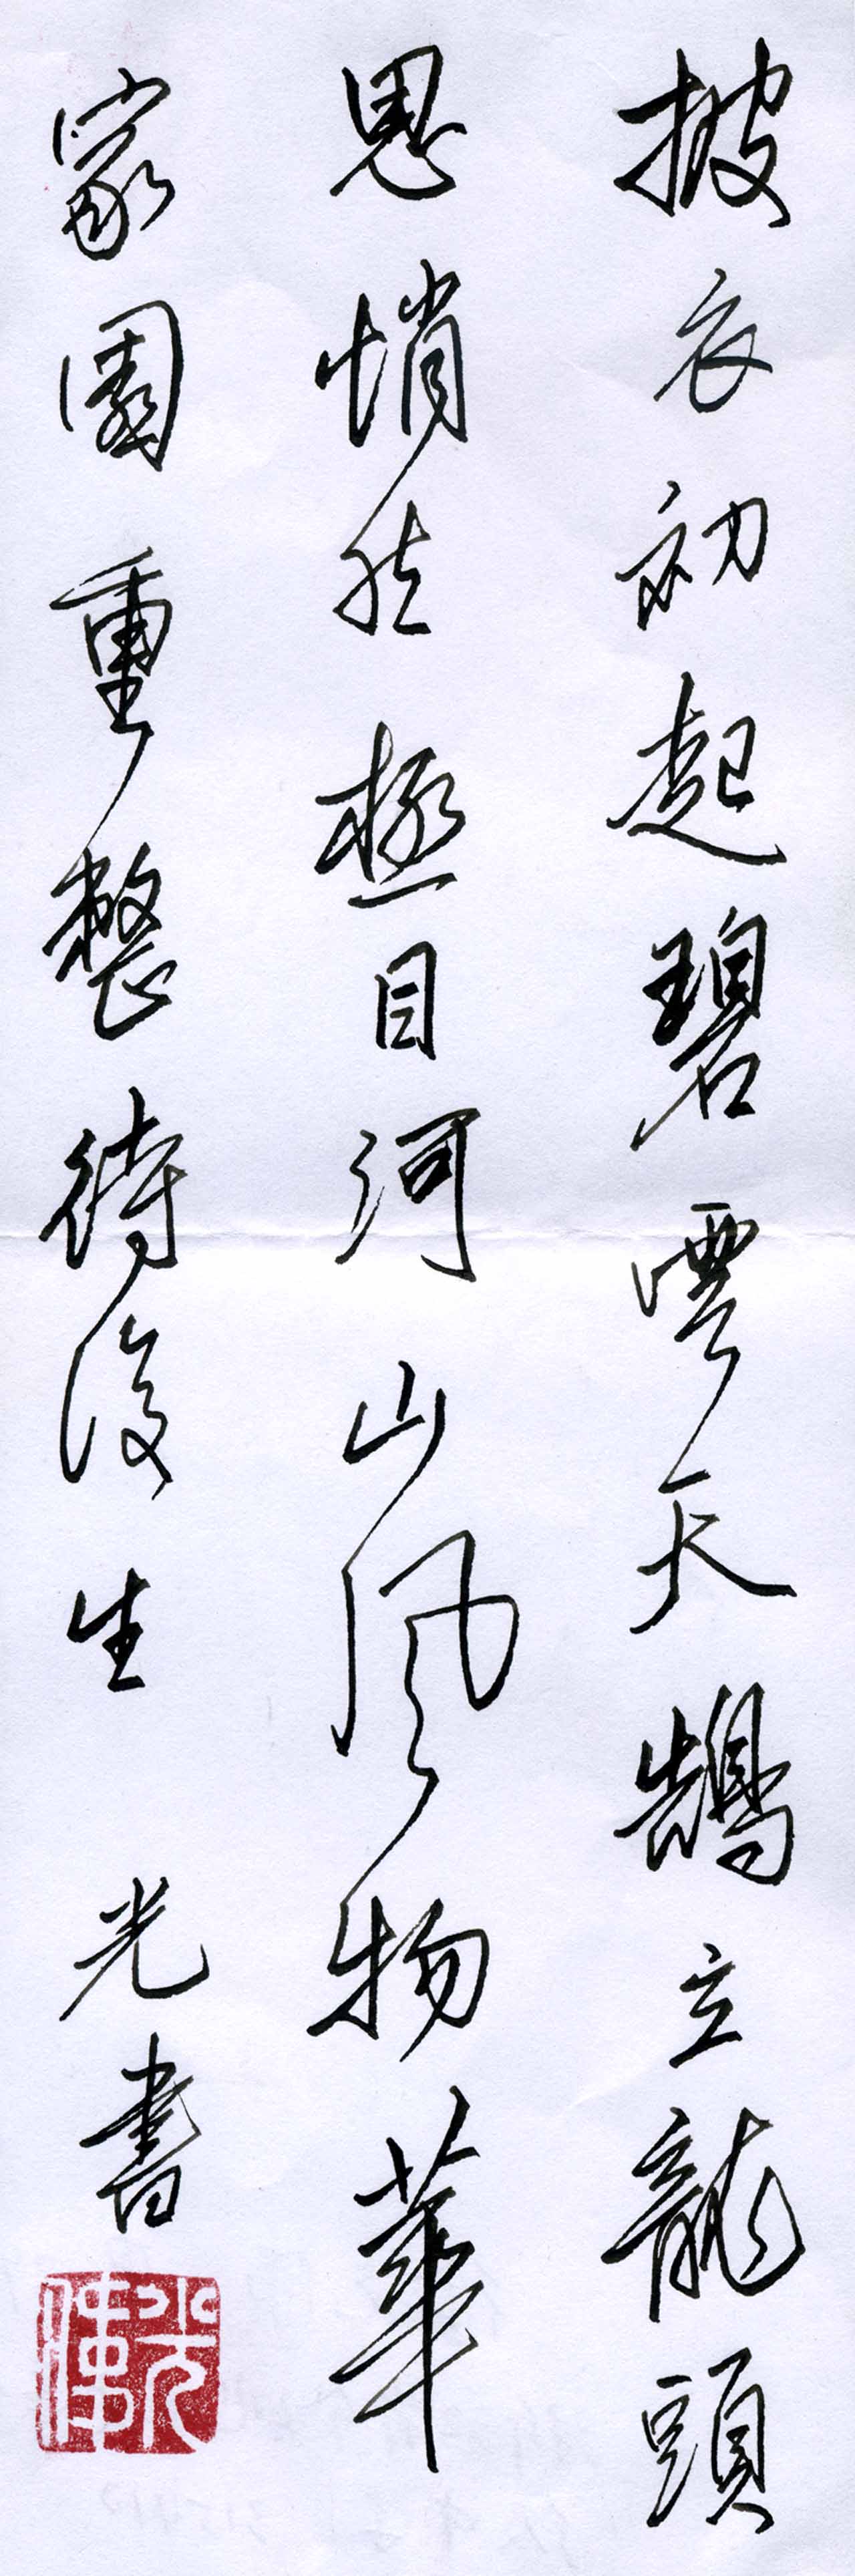 披衣初起碧雲天鵠立龍頭
思悄然極目河山風物華
家園重整待後生 光書
光偉